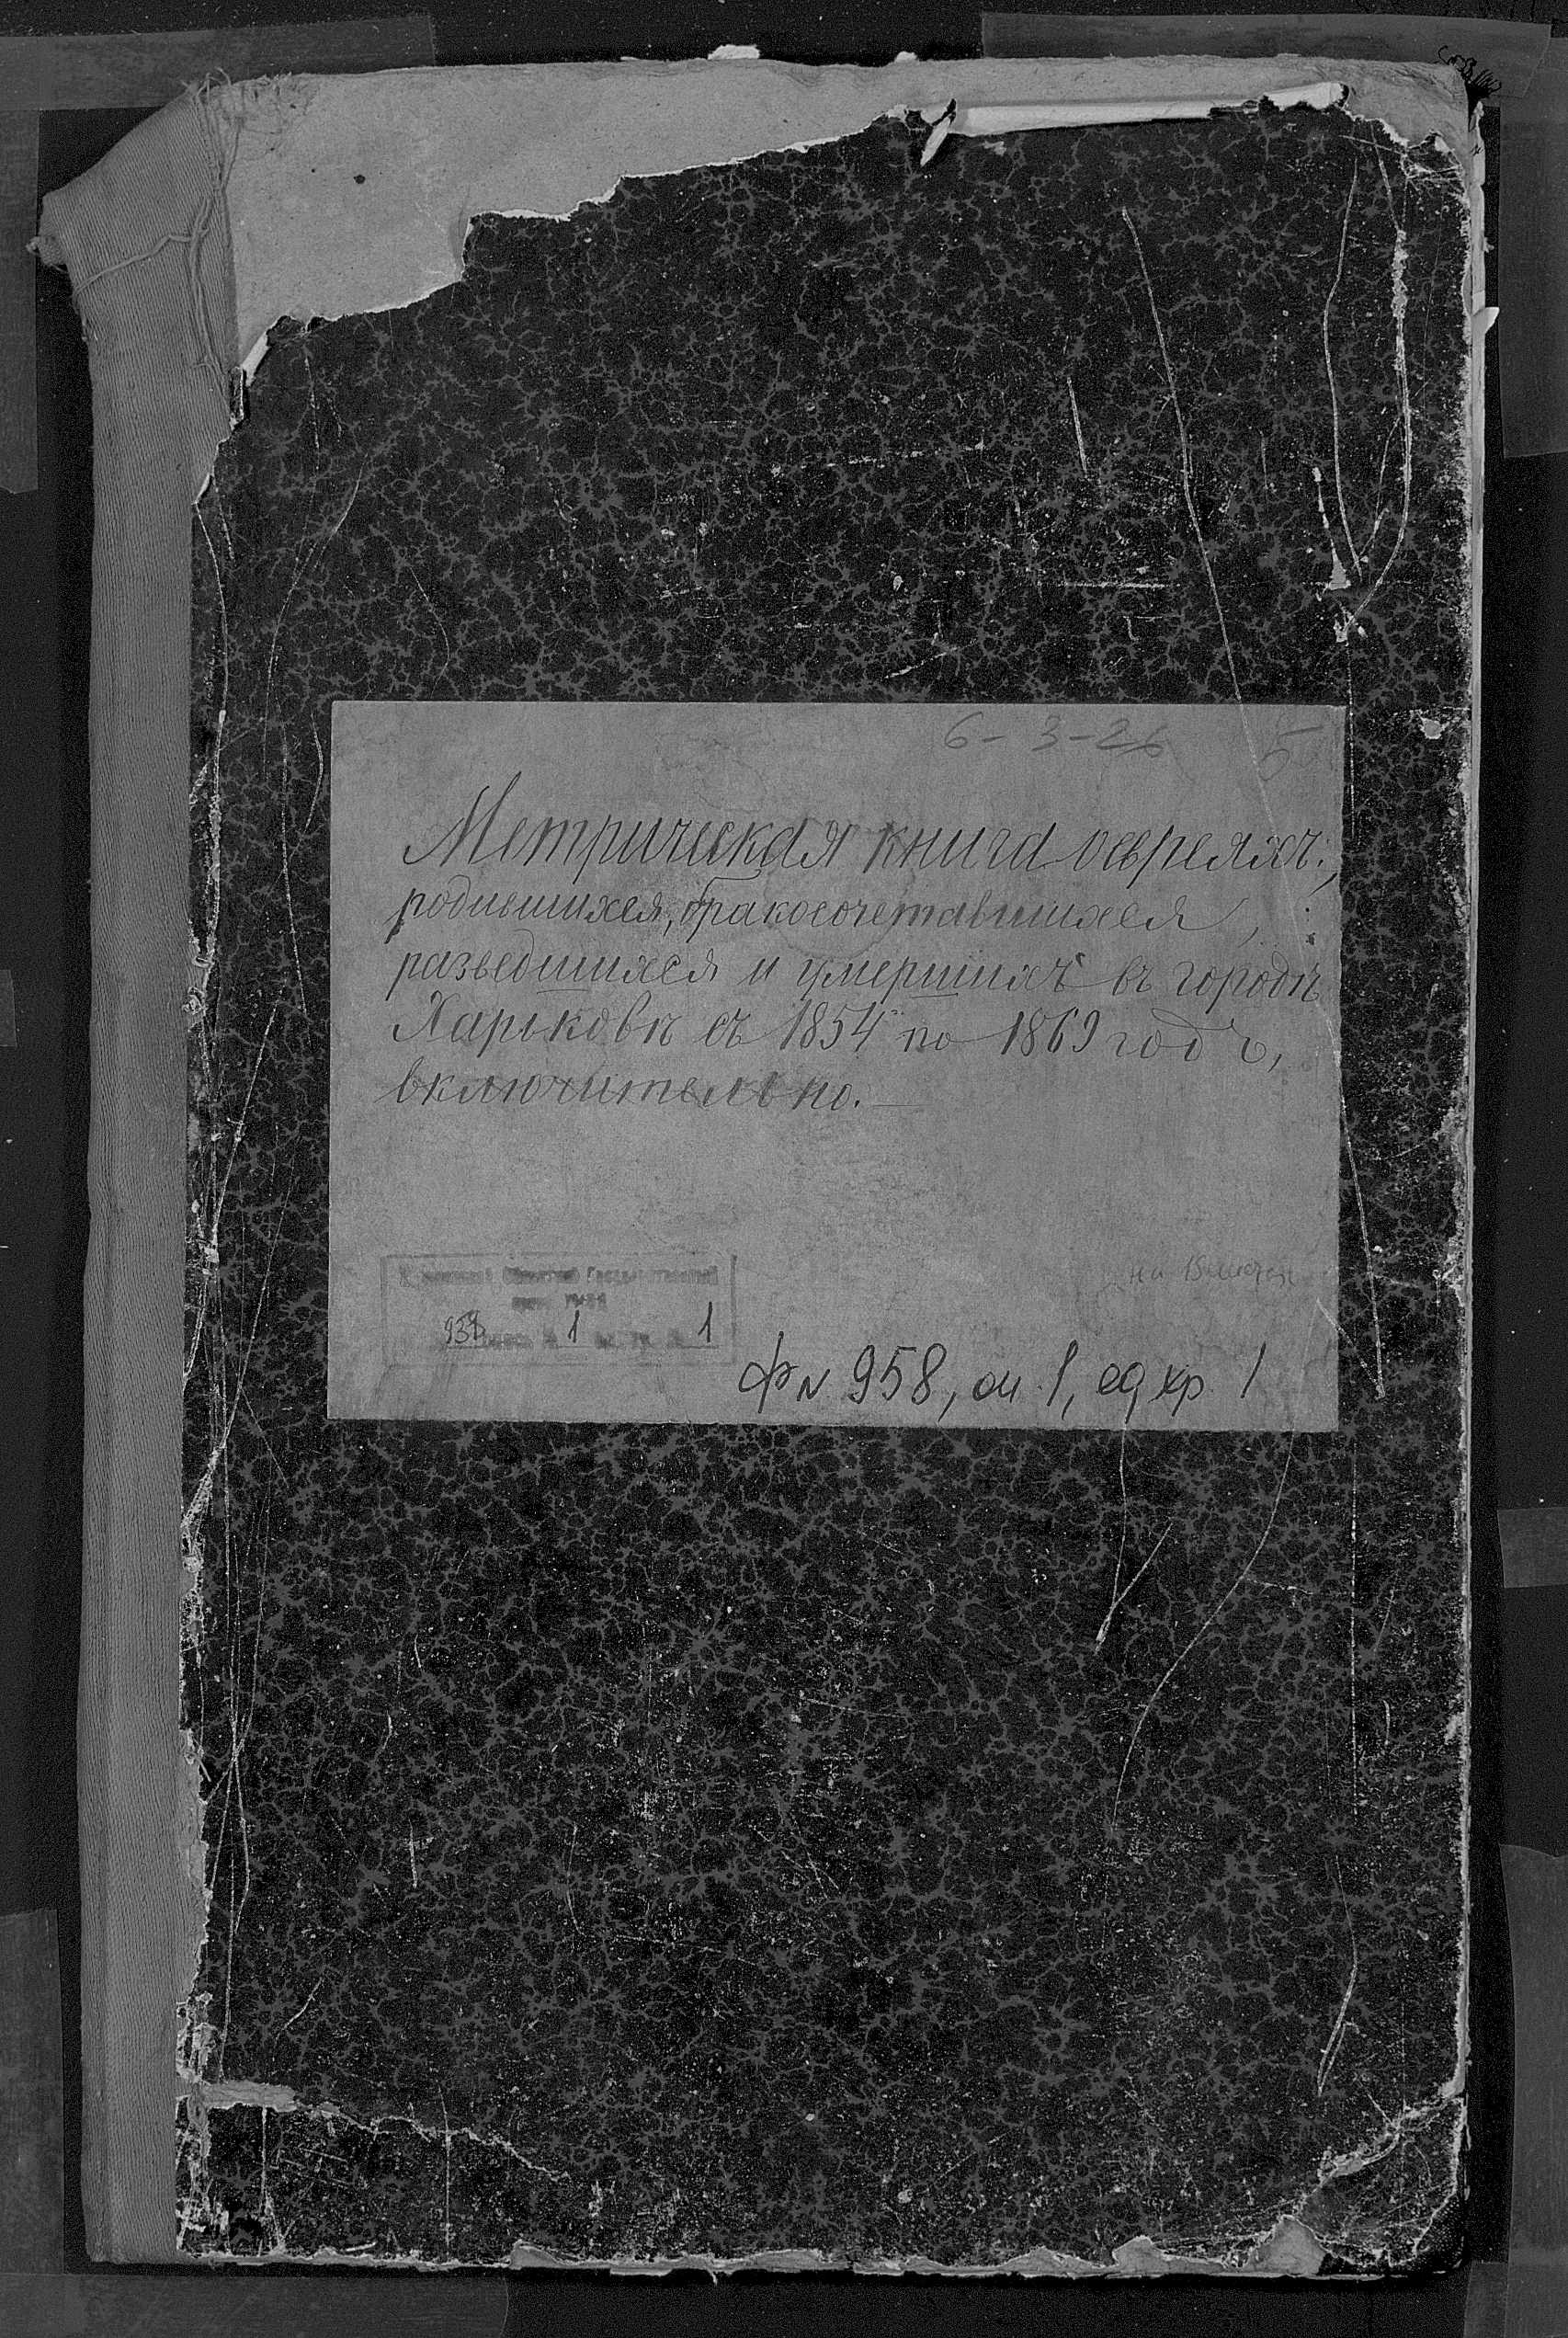 6-3-26
Метрическая книга оевреяхъ;
родившихся, бракосочетавшихся,
разведшихся и умершихъ въ городѣ
Харьковѣ съ 1854 по 1869 годъ,
включительно.—
Областной Государственный
1 1
ф N 958, оп. 1, ед хр. 1